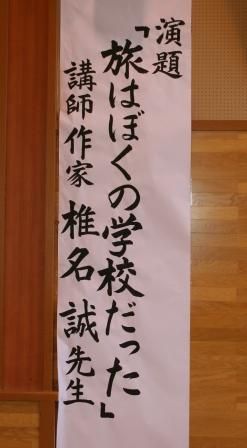 演題
「旅はぼくの学校だった」
講師作家 椎名 誠先生